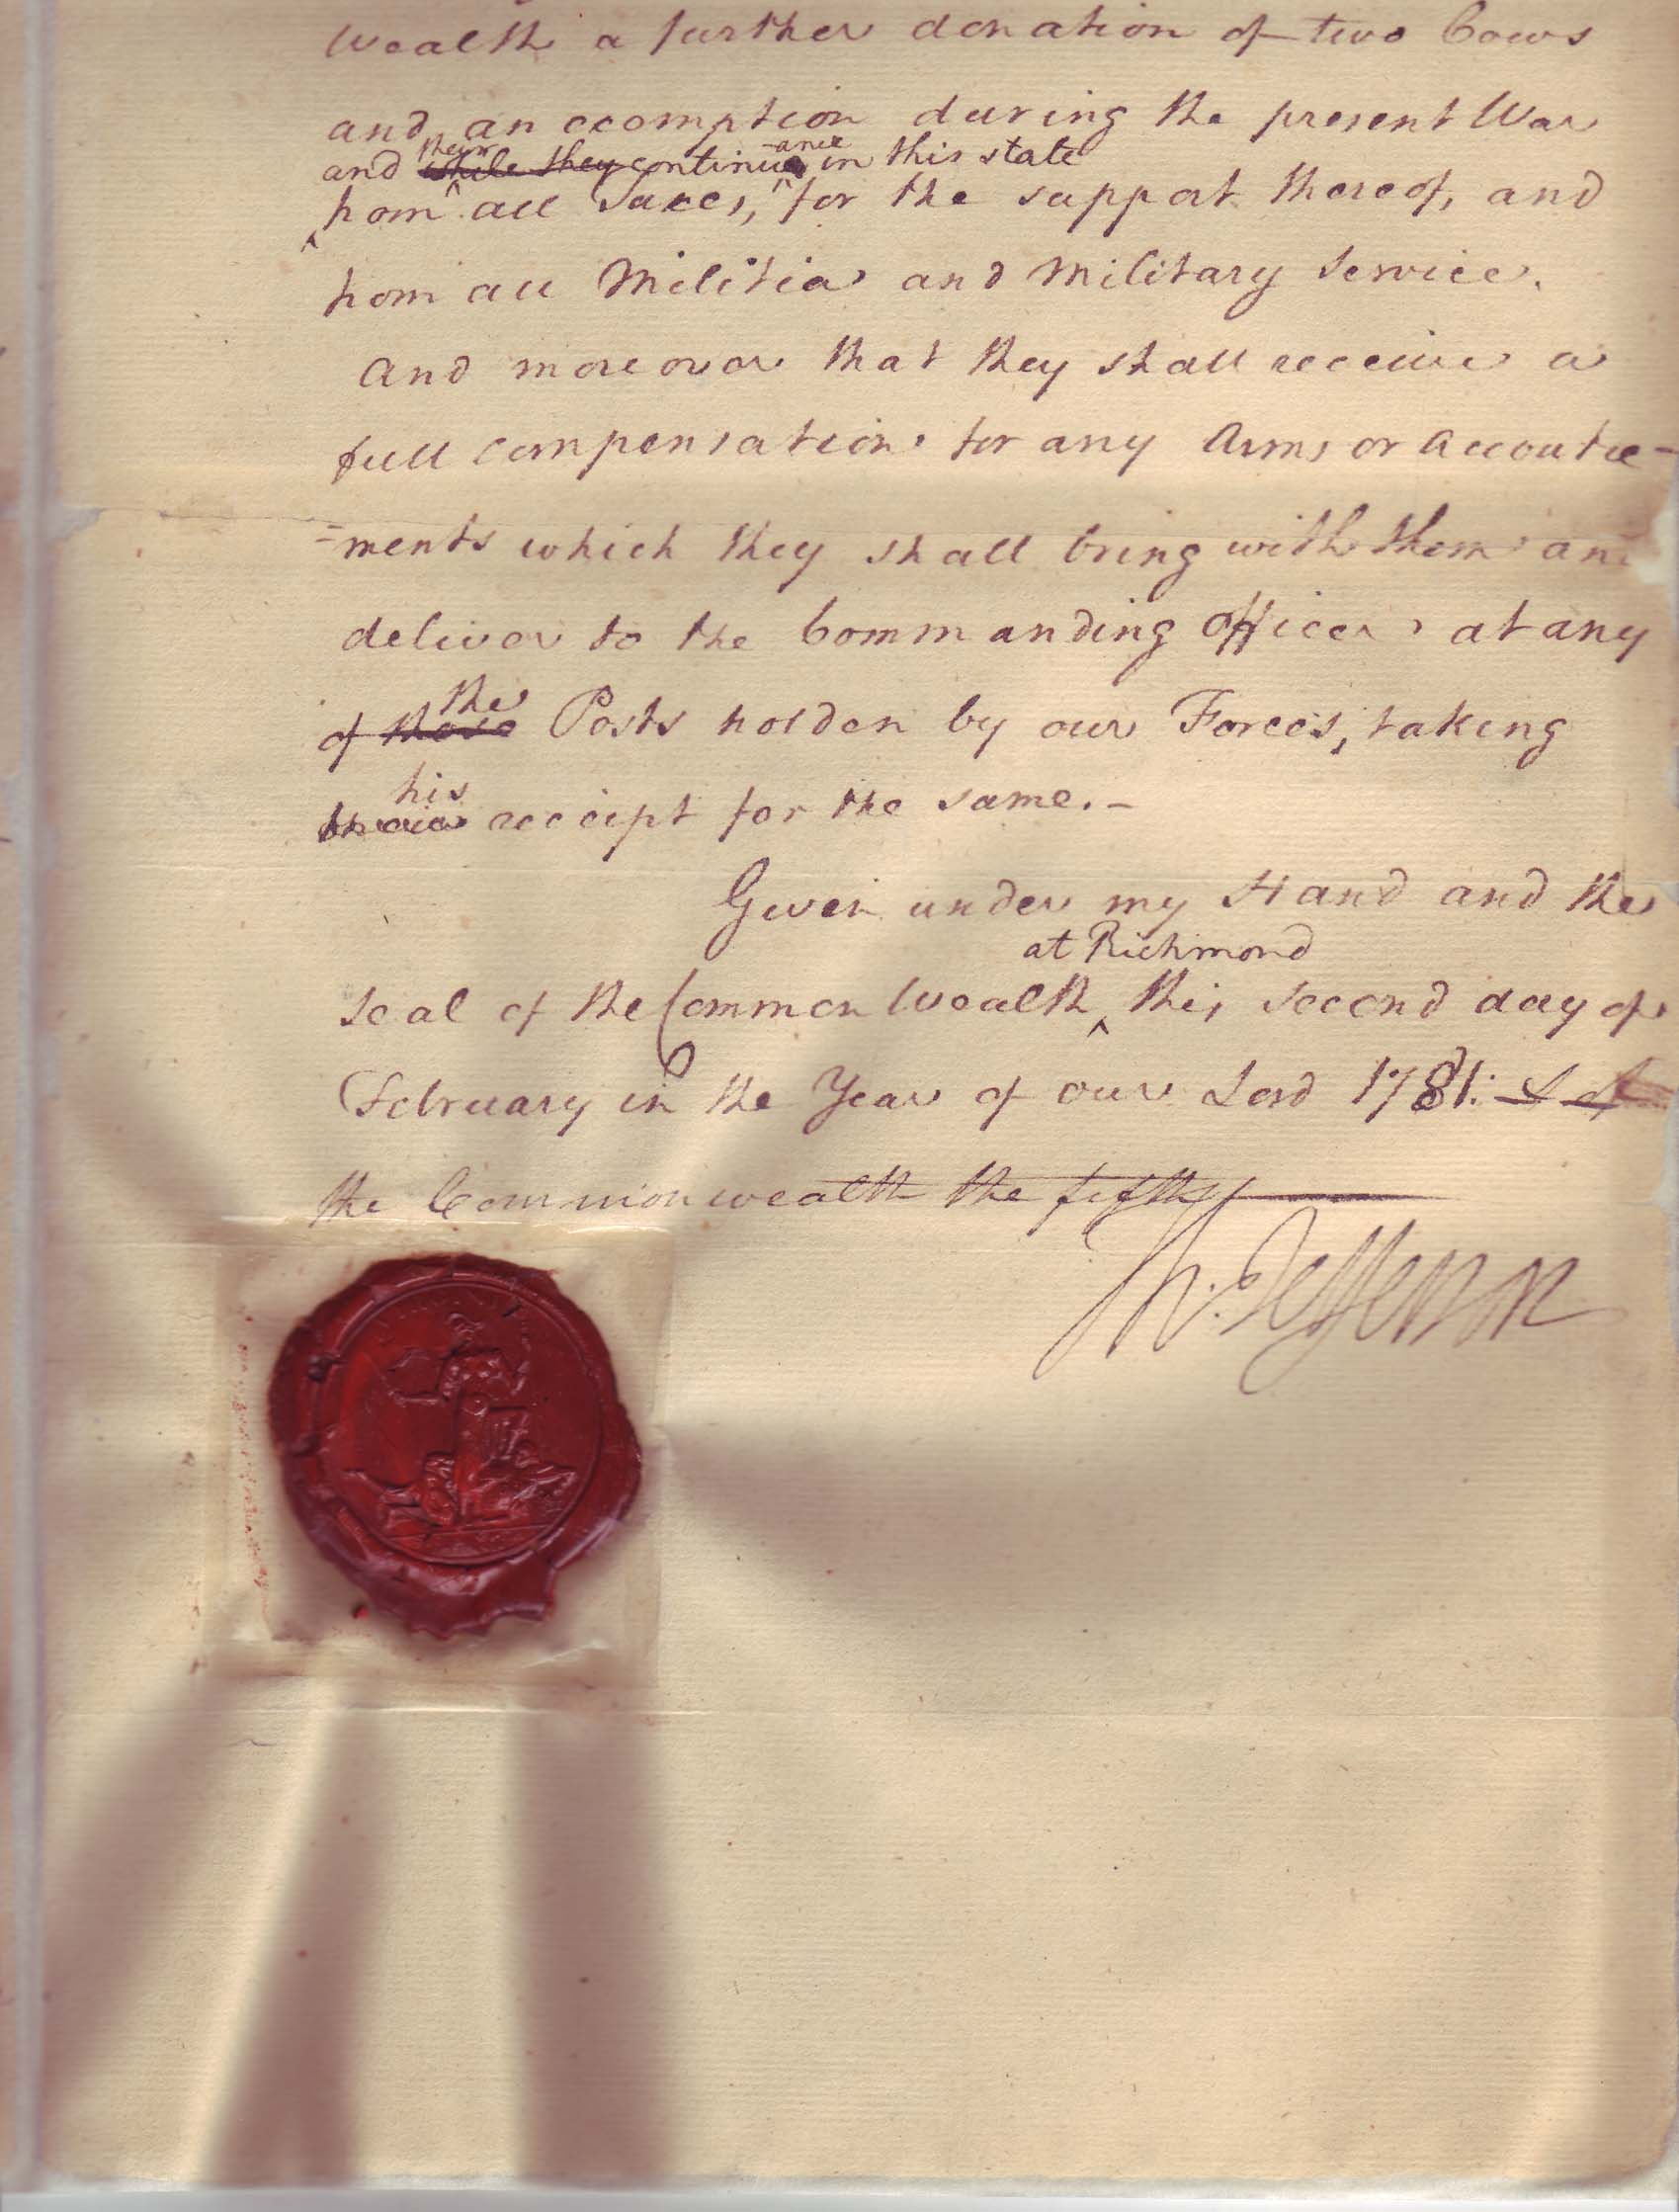 Wealth a further donation of two Cows
and an exemption during the present War
their ance
and while they continue in this state
from all Taxes, for the support thereof, and
from all Militia and Military Service.
And moreover that they shall receive a
full compensation for any Arms or Accoutre-
-ments which they shall bring with them and
deliver to the Commanding Officer at any
the
of those Posts holden by our Forces, taking
his
their receipt for the same.-
Given under my Hand and the
at Richmond
Seal of the Common Wealth this second day of
February in the Year of our Lord 1781: & of
the Commonwealth the fifth
Th: Jefferson